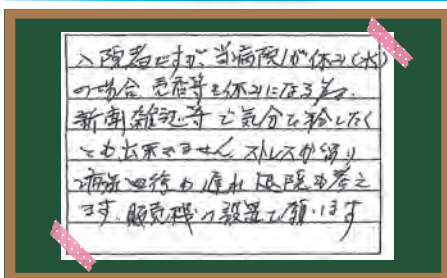 入院者ですが、当病院が休み(水)
の場合、売店等も休みになる為、
新聞雑誌等で気分を紛したく
とも出来ません。ストレスが溜り
病気回復も遅れ退院も考え
ます。販売機の設置を願います